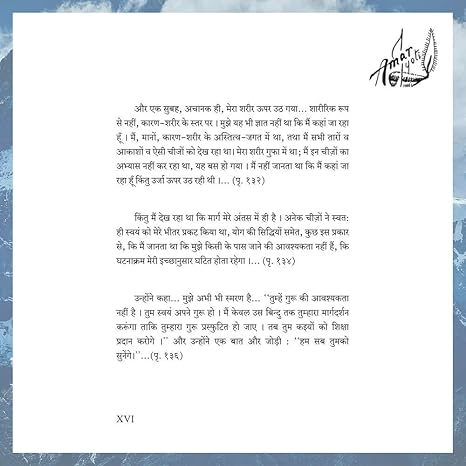 Amar Jyoti
और एक सुबह, अचानक ही, मेरा शरीर ऊपर उठ गया... शारीरिक रूप
से नहीं, कारण-शरीर के स्तर पर । मुझे यह भी ज्ञात नहीं था कि मैं कहां जा रहा
हूँ । मैं, मानों, कारण-शरीर के अस्तित्व-जगत में था, तथा मैं सभी तारों व
आकाशों व ऐसी चीजों को देख रहा था। मेरा शरीर गुफा में था; मैं इन चीज़ों का
अभ्यास नहीं कर रहा था, यह बस हो गया । मैं नहीं जानता था कि मैं कहां जा
रहा हूँ किंतु उर्जा ऊपर उठ रही थी ।... (पृ. १३२)
किंतु मैं देख रहा था कि मार्ग मेरे अंतस में ही है । अनेक चीज़ों ने स्वत:
ही स्वयं को मेरे भीतर प्रकट किया था, योग की सिद्धियों समेत, कुछ इस प्रकार
से, कि मैं जानता था कि मुझे किसी के पास जाने की आवश्यकता नहीं हैं, कि
घटनाक्रम मेरी इच्छानुसार घटित होता रहेगा ।... (पृ. १३४)
उन्होंने कहा... मुझे अभी भी स्मरण है... ‘‘तुम्हें गुरू की आवश्यकता
नहीं है । तुम स्वयं अपने गुरू हो । मैं केवल उस बिन्दु तक तुम्हारा मार्गदर्शन
करूंगा ताकि तुम्हारा गुरु प्रस्फुटित हो जाए । तब तुम कइयों को शिक्षा
प्रदान करोगे ।’’ और उन्होंने एक बात और जोड़ी : ‘‘हम सब तुमको
सुनेंगे।’’...(पृ. १३६)
XVI